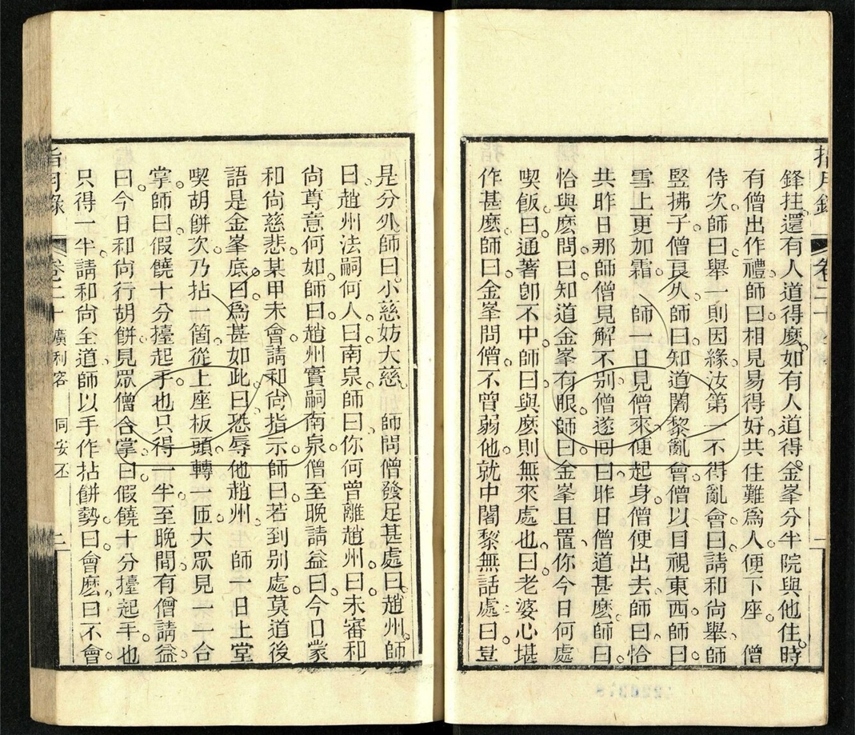 鋒拄還有人道得麼如有人道得金峯分半院與他住時
有僧出作禮師曰相見易得好共住難為人便下座 僧
侍次師曰舉一則因緣汝第一不得亂會曰請和尚舉師
竪拂子僧良久師曰知道闍黎亂會僧以目視東西師曰
雪上更加霜 師一日見僧來便起身僧便出去師曰恰
共昨日那師僧見解不別僧遂回曰昨日僧道甚麼師曰
恰與麼問曰知道金峯有眼師曰金峯且置你今日何處
喫飯曰通著卽不中師曰與麼則無來處也曰老婆心堪
作甚麼師曰金峯問僧不曾弱他就中闍黎無話處曰豈
指月錄 卷二十
是分外師曰小慈妨大慈 師問僧發足甚處曰趙州師
曰趙州法嗣何人曰南泉師曰你何曾離趙州曰未審和
尚尊意何如師曰趙州實嗣南泉僧至晚請益曰今日蒙
和尚慈悲某甲未會請和尚指示師曰若到別處莫道後
語是金峯底曰為甚如此曰恐辱他趙州 師一日上堂
喫胡餅次乃拈一箇從上座板頭轉一匝大眾見一一合
掌師曰假饒十分擡起手也只得一半至晚間有僧請益
曰今日和尚行胡餅見眾僧合掌曰假饒十分擡起手也
只得一半請和尚全道師以手作拈餅勢曰會麼曰不會
指月錄 卷二十 廣利容 同安丕 二